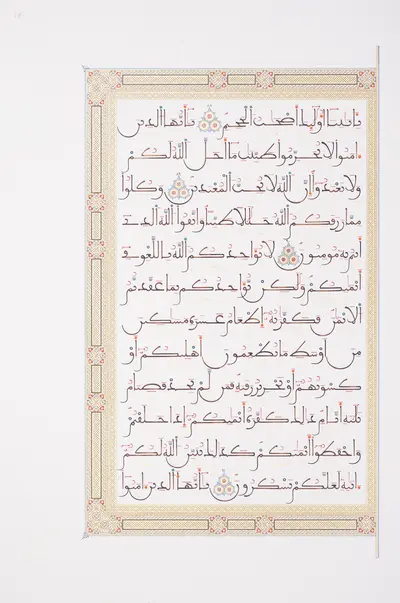 بـٔايٰتنا أولٰئك أصحٰب الجحيم يٰأيها الذين
ءامنوا لا تحرموا طيبٰت ما أحل الله لكم
ولا تعتدوا إن الله لا يحب المعتدين وكلوا
مما رزقكم الله حلٰلا طيبا واتقوا الله الذي
أنتم به مومنون لا يواخذكم الله باللغو في
أيمٰنكم ولٰكن يواخذكم بما عقدتم
الأيمٰن فكفٰرته إطعام عشرة مسٰكين
من أوسط ما تطعمون أهليكم أو
كسوتهم أو تحرير رقبة فمن لم يجد فصيام
ثلٰثة أيام ذٰلك كفٰرة أيمٰنكم إذا حلفتم
واحفظوا أيمٰنكم كذٰلك يبين الله لكم
ءايٰته لعلكم تشكرون يٰأيها الذين ءامنوا